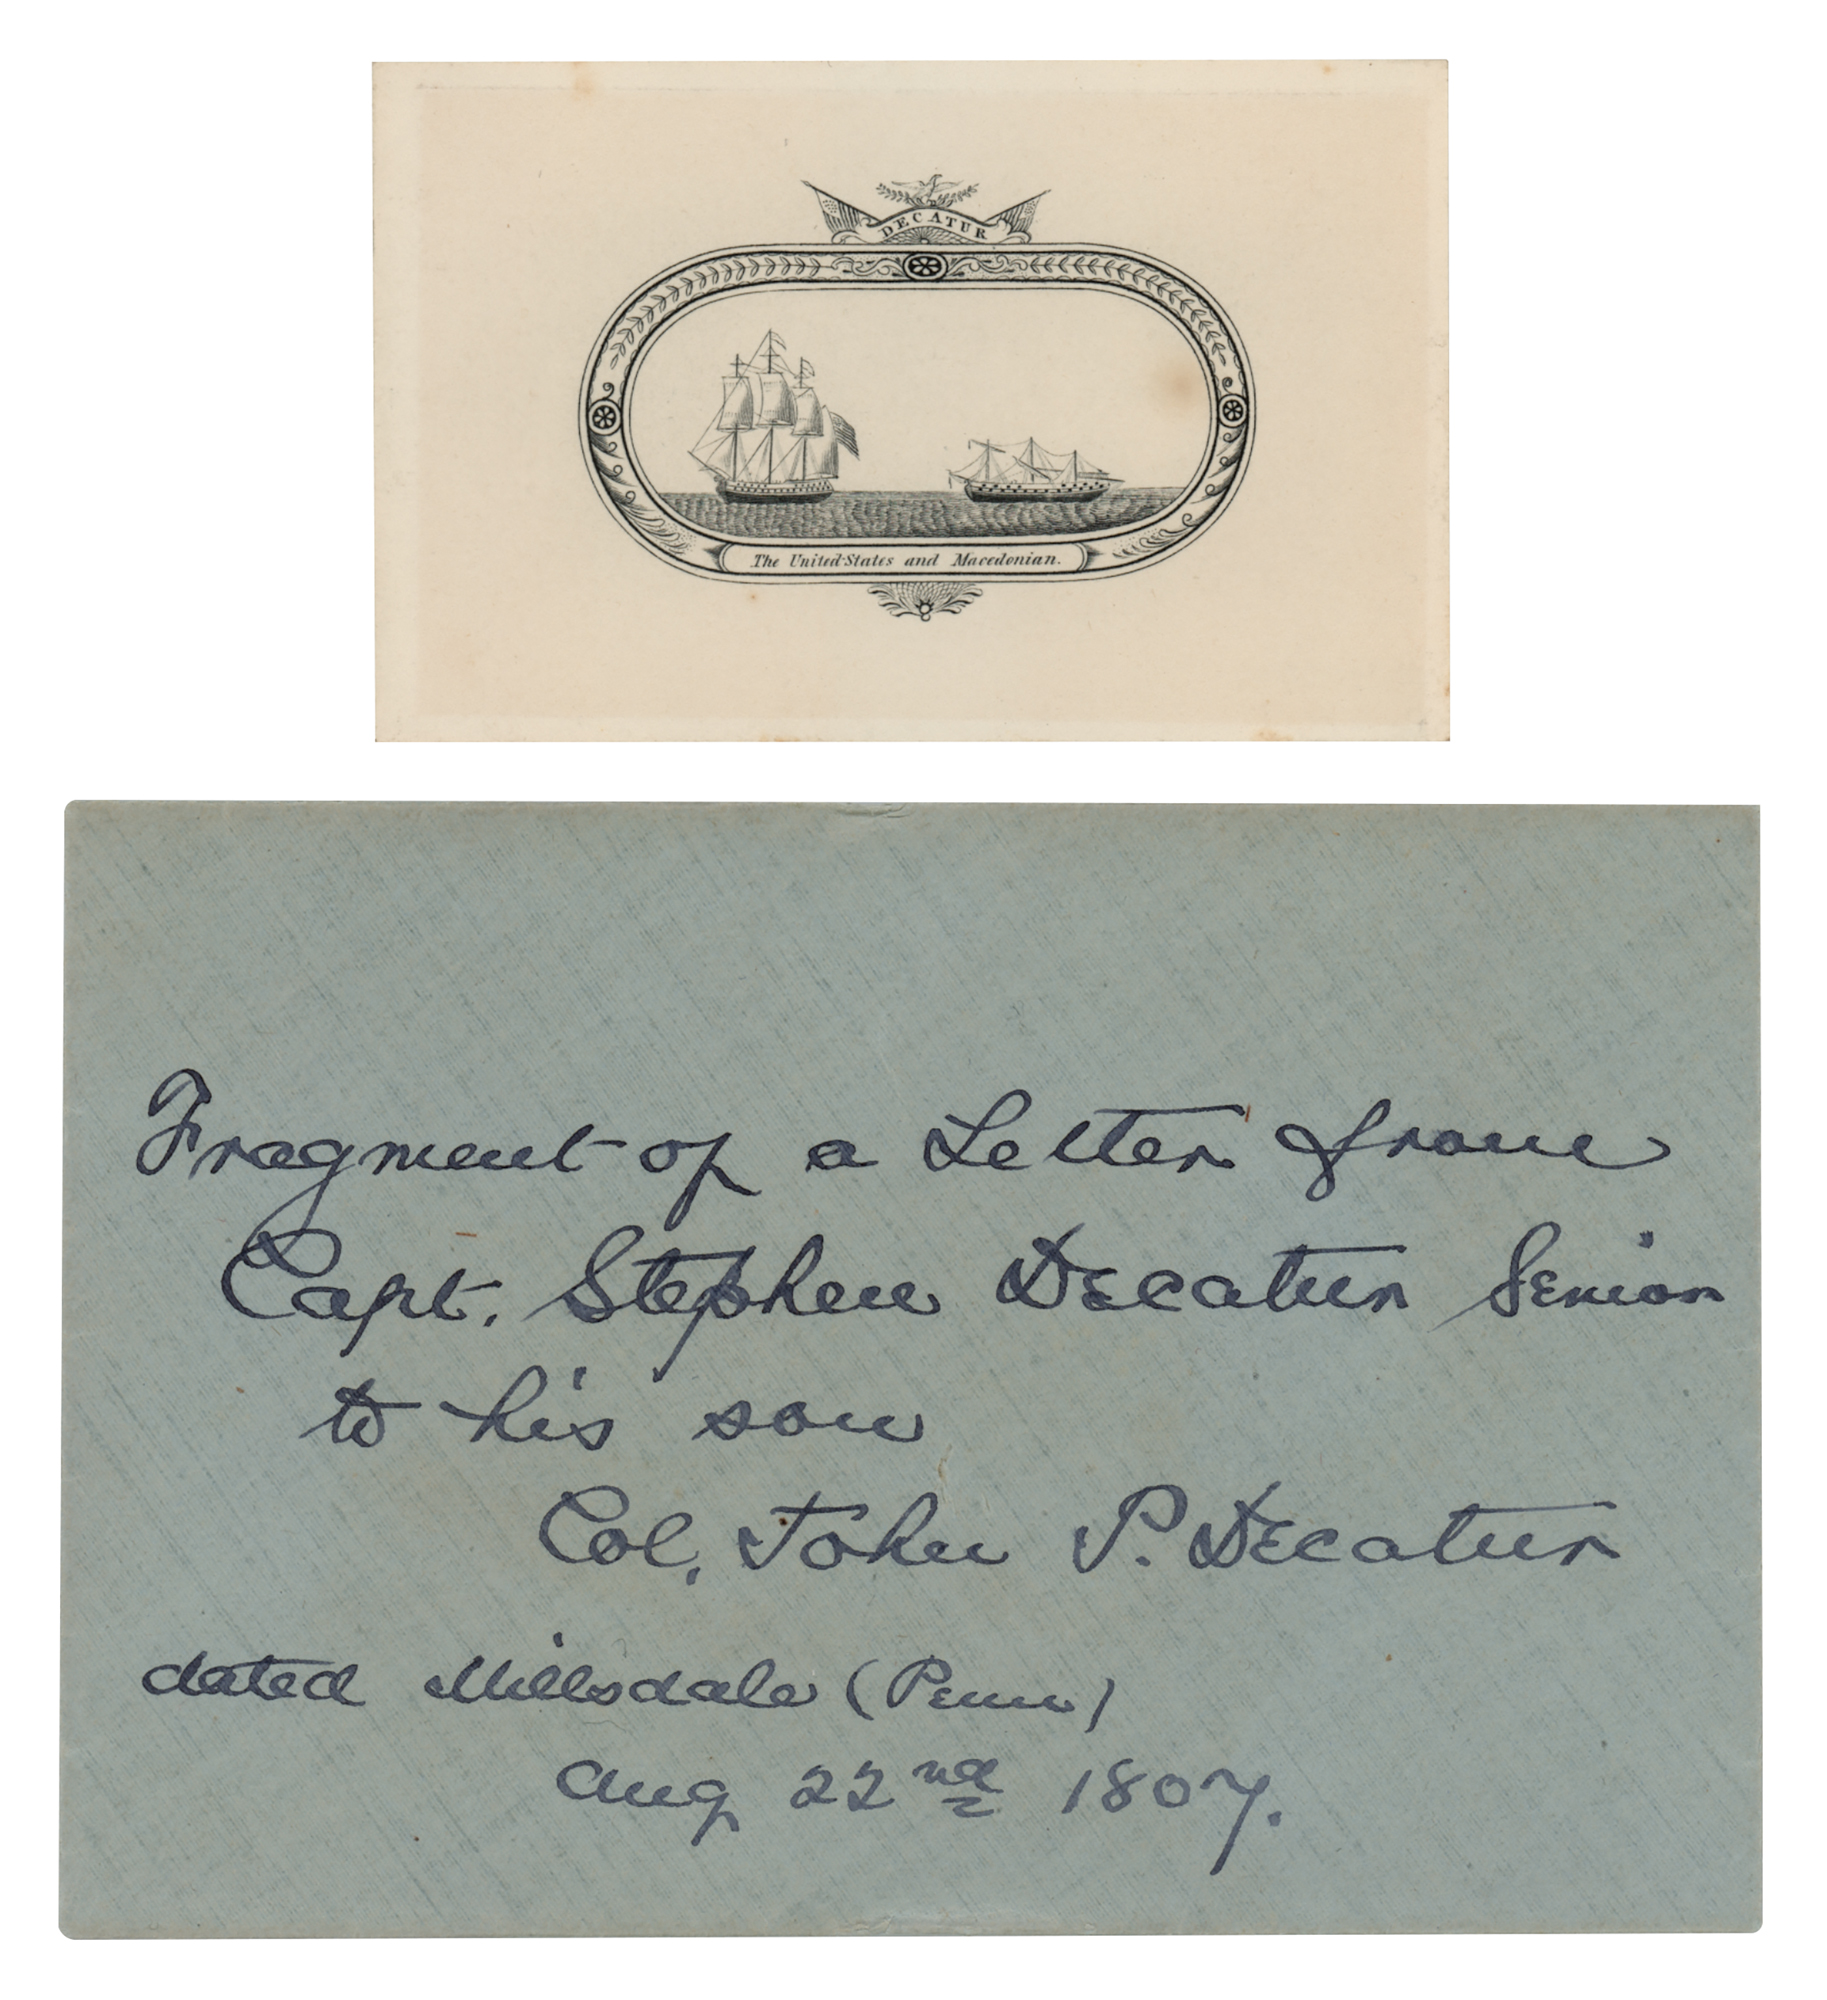 DECATUR
The United States and Macedonian.
Fragment of a Letter from
Capt. Stephen Decatur Senior
to his son
Col. John P. Decatur
dated Millsdale (Penn)
Aug 22nd 1807.